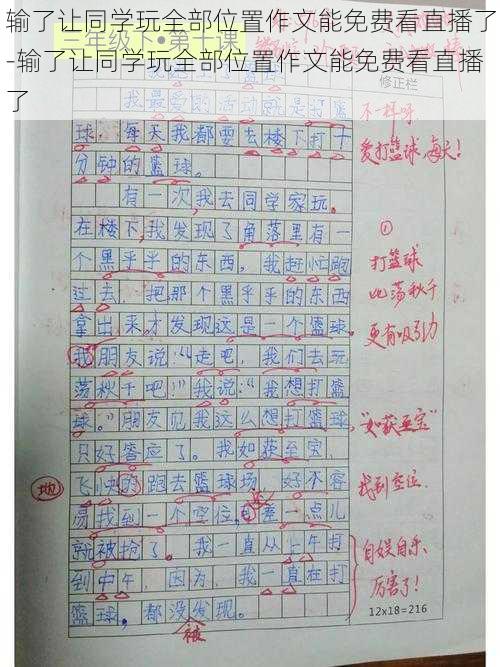 输了让同学玩全部位置作文能免费看直播了
-输了让同学玩全部位置作文能免费看直播
了
三年级下•第二课
修正栏
我最爱的活动就是打篮
球，每天我都要去楼下打十
分钟的篮球。
有一次我去同学家玩。
在楼下，我发现了角落里有一
个黑乎乎的东西，我赶忙跑
过去，把那个黑乎乎的东西
拿出来才发现这是一个篮球。
我朋友说：“走吧，我们去玩
荡秋千吧！”我说：“我想打篮
球。”朋友见我这么想打篮球，
只好答应了。我如获至宝，
飞快的跑去篮球场，好不容
易找到一个空位，差一点儿
就被抢了。我一直从上午打
到中午，因为，我一直在打
篮球，都没发现。
地
被
不一样呀
爱打篮球，每天！
①
打篮球
比荡秋千
更有吸引力
“如获至宝”
找到空位
自娱自乐、
厉害了！
12x18=216